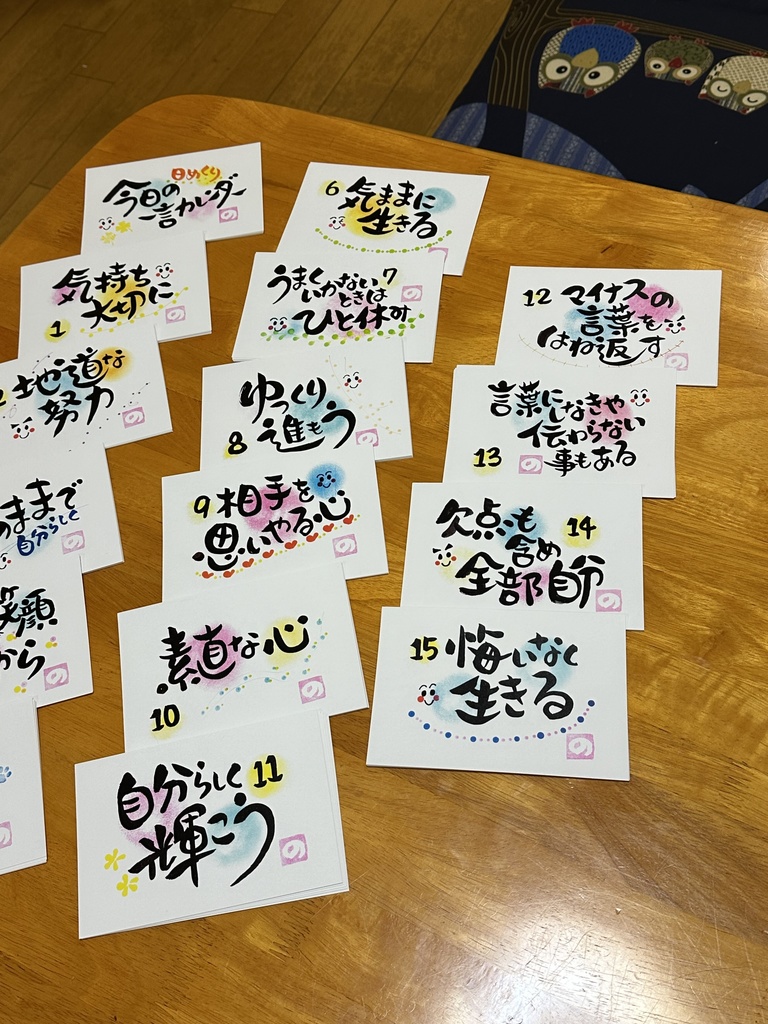 日めくり
今日の
一言カレンダー
の
気持ち
大切に
1
の
地道な
努力
の
ままで
自分らしく
の
笑顔
から
の
6
気ままに
生きる
うまく
いかない
ときは
7
ひと休み
の
ゆっくり
8
進もう
の
9
相手を
思いやる心
の
素直な心
10
の
自分らしく
11
輝こう
の
12
マイナスの
言葉を
はね返す
の
言葉に
しなきゃ
伝わらない
13
事もある
の
欠点も
14
含め
全部自分
の
15
悔いなく
生きる
の